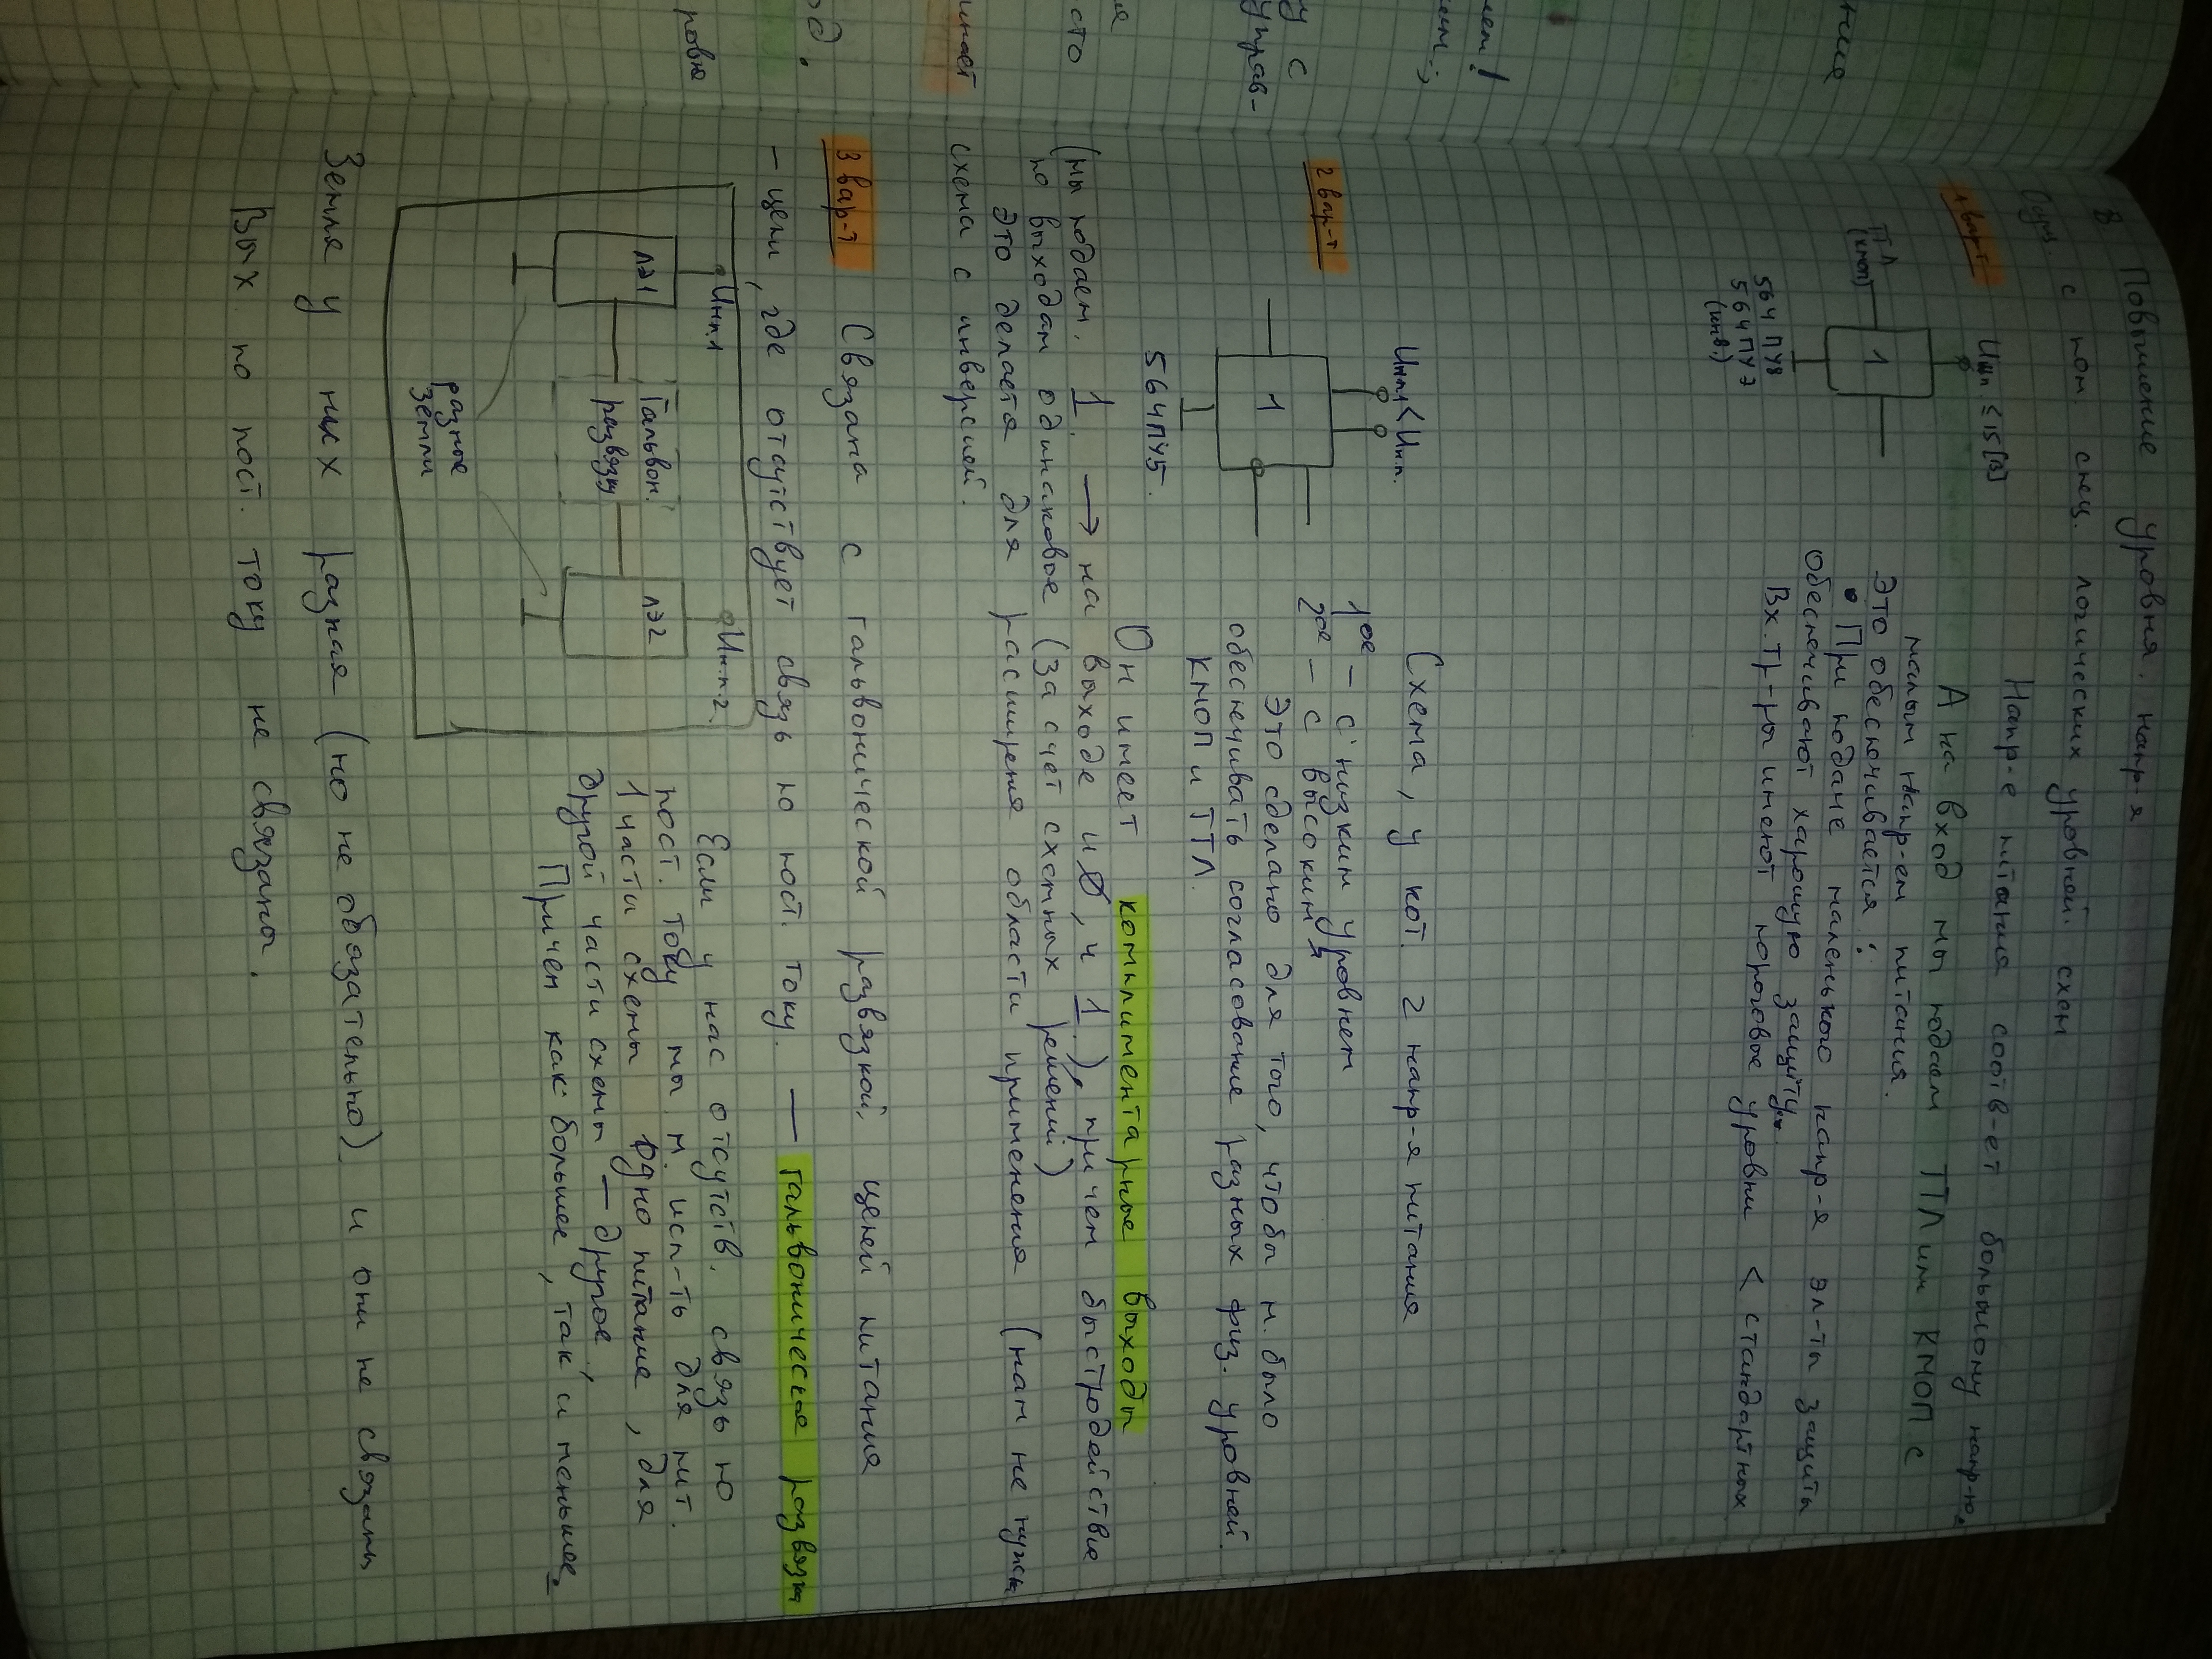 8 Повышение уровня. напр-я
с пом. спец. логических уровней. схем
1 вар-т
Uип. ≤ 15 [В]
ТТЛ
(КМОП)
1
564 ПУ8
564 ПУЭ
(инв.)
Напр-е питания соотв-ет большому напр-ю.
А на вход мы подаем ТТЛ или КМОП с
малым напр-ем питания.
Это обеспечивается:
• При подаче маленького напр-я эл-ты защиты
обеспечивают харошую защиту.
Вх. тр-ры имеют пороговые уровни < стандартных
2 вар-т
Uип1 < Uип.
1
564ПУ5.
Схема, у кот. 2 напр-я питания
1ое – с низким уровнем
2ое – с высоким
Это сделано для того, чтобы м. было
обеспечивать согласование разных физ. уровней.
КМОП и ТТЛ.
Он имеет комплиментарные выходы
(мы подаем. 1. → на выходе и 0, и 1.), причем быстродействие
по выходам одинаковое (за счет схемных решений)
Это делается для расширения области применения (нам не нужна
схема с инверсией.
3 вар-т
Связана с гальвонической развязкой. цепей питания
– цепи, где отсутствует связь по пост. току. — гальвоническая развязка
Uип.1
ЛЭ1
Гальвон.
развязка
ЛЭ2
Uип.2.
разные
земли
Если у нас отсутств. связь по
пост. току мы м. исп-ть для пит.
1 части схемы одно питание, для
другой части схемы – другое
Причем как большее, так и меньшее.
Земля у них разная (но не обязательно). и они не связаны
Вых по пост. току не связаны.
нает
сто
я
у с
управ-
лем!
ние